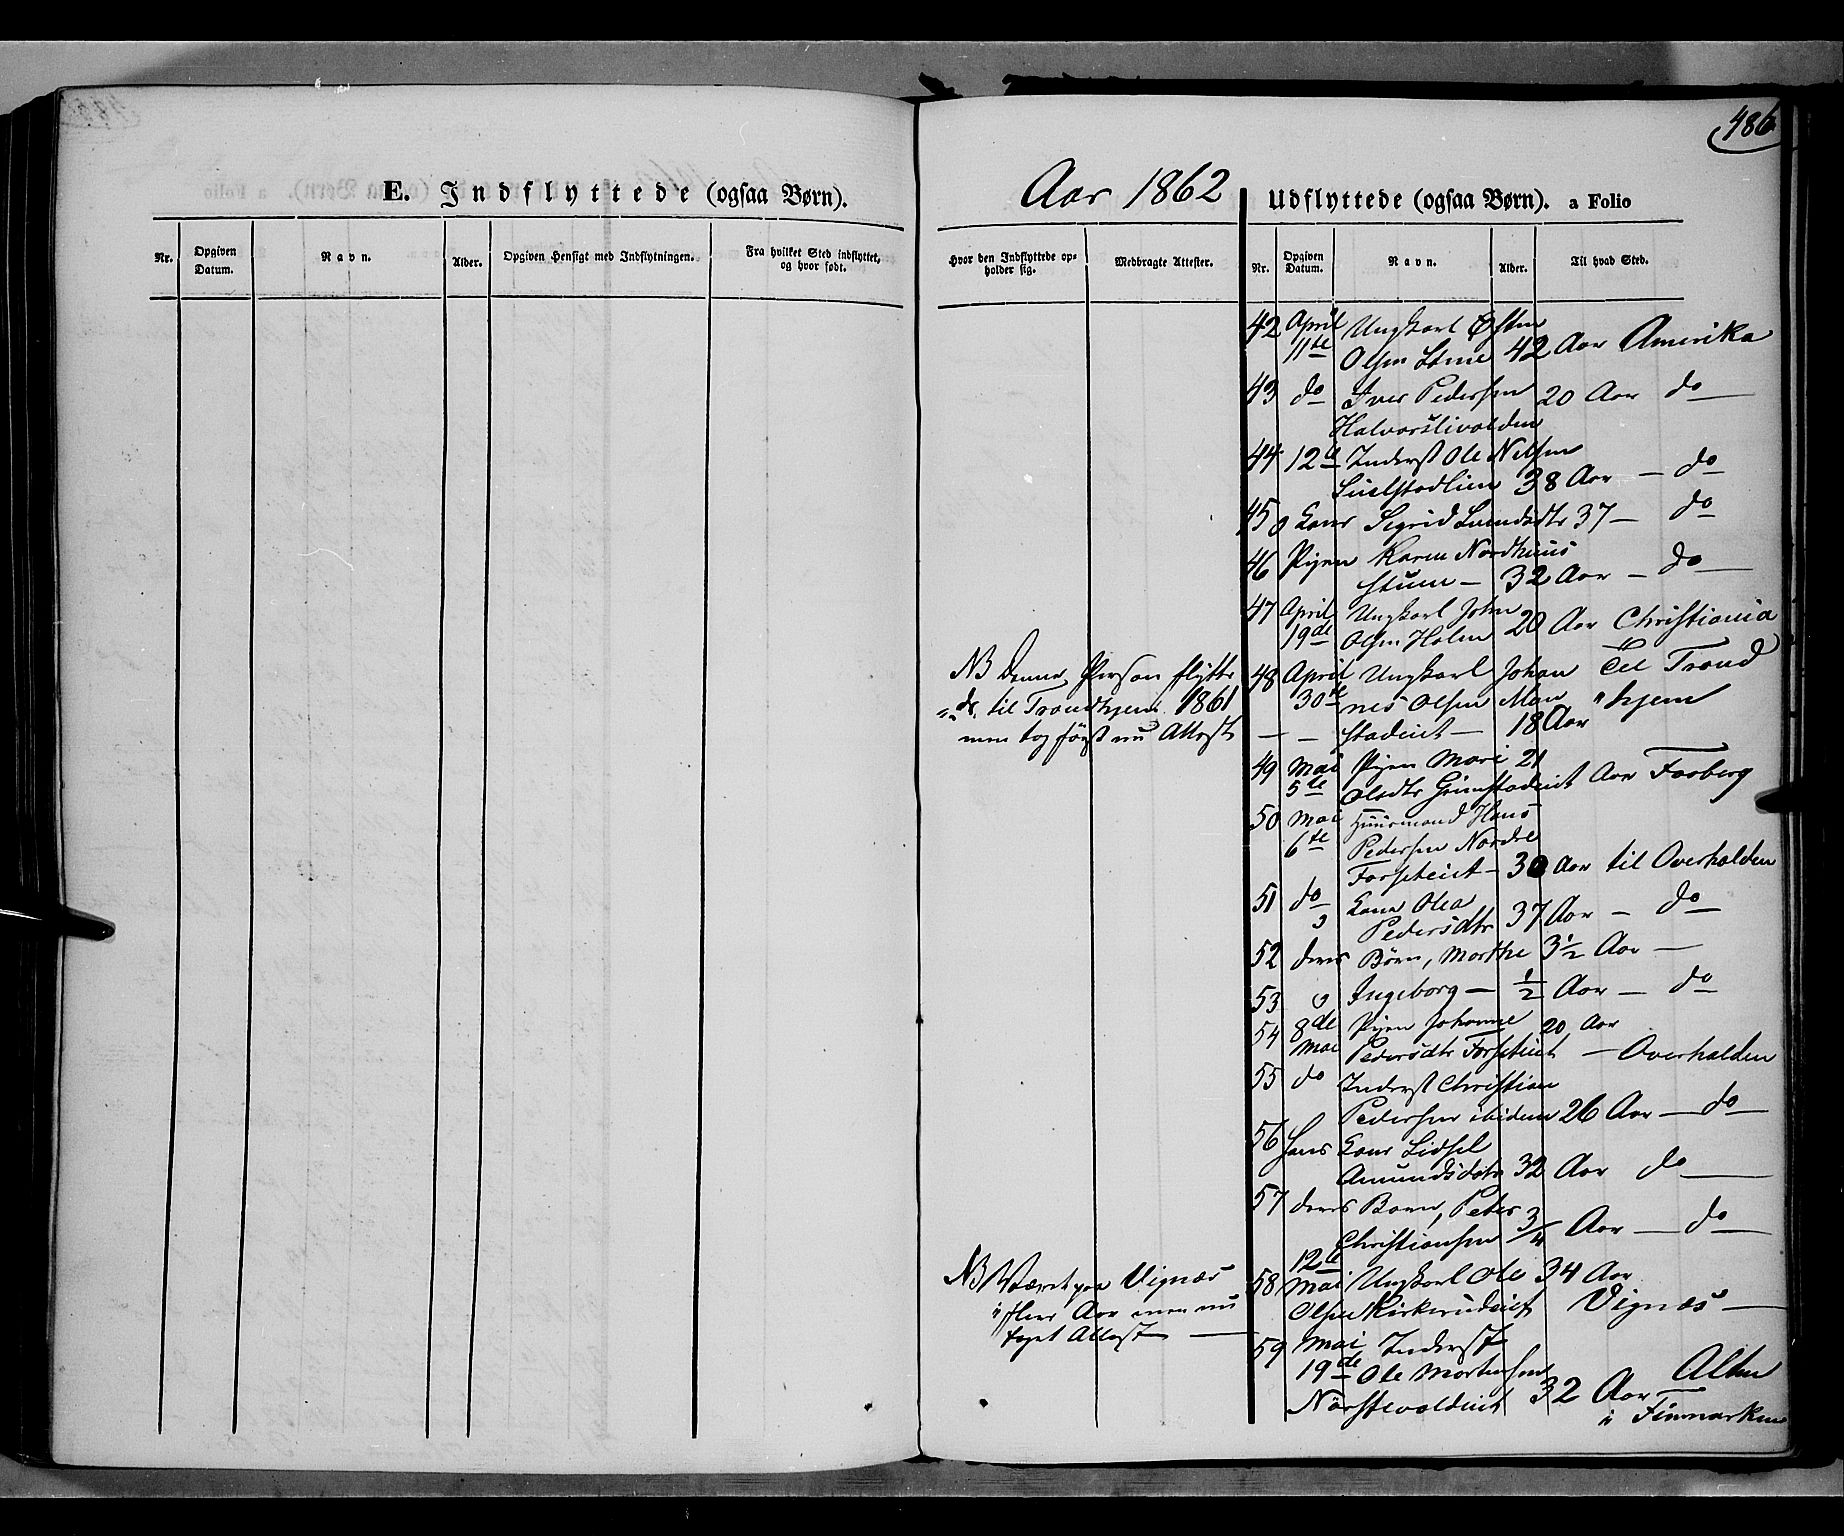 486
Aar 1862
E. Indflyttede (ogsaa Børn).
Udflyttede (ogsaa Børn). a Folio
Nr.
Opgiven Datum.
Navn.
Alder.
Opgiven Hensigt med Indflytningen.
Fra hvilket Sted indflyttet, og hvor født.
Hvor den Indflyttede opholder sig.
Medbragte Attester.
Nr.
Opgiven Datum.
Navn.
Alder.
Til hvad Sted.
42 April Ungkarl Østen
11te Olsen 42 Aar Amerika
43 do Iver Pedersen 20 Aar do
Halvorslivolden
44 12te Inderst Ole Nilsen
38 Aar – do
45 Kone Sigrid 37 – do
46 Pigen Karen Nordhuus
stuen – 32 Aar – do
47 April Ungkarl John
19de Olsen Holen 20 Aar Christiania
NB Denne Person flytte
de til Trondhjem 1861
men tog først nu Attest
48 April Ungkarl Johan Til Trond
30te nes Olsen Moen "hjem
stadeiet – 18 Aar
49 Mai Pigen Mari 21
5te Olsdtr Grimstadeiet Aar Faaberg
50 Mai Huusmand Hans
6te Pedersen Nordre
Forseteiet – 30 Aar til Overhalden
51 do Kone Olea
Pedersdtr 37 Aar – do
52 deres Børn, Marthe 3½ Aar –
53 Ingeborg – ½ Aar – do
54 8de Pigen Johanne 20 Aar
Mai Pedersdtr Forseteiet – Overhalden
55 do Inderst Christian
Pedersen ibidem 26 Aar – do
56 Hans Kone Lidsel
Amundsdatr 32 Aar do
57 deres Barn, Peter
Christiansen 3/4 Aar – do
NB Været paa Vignæs
i flere Aar men nu
taget Attest
12te
58 Mai Ungkarl Ole 34 Aar
Olsen Kirkerudeiet Vignæs –
59 Mai Inderst
19de Ole Mortensen Alten
32 Aar –
i Finmarken